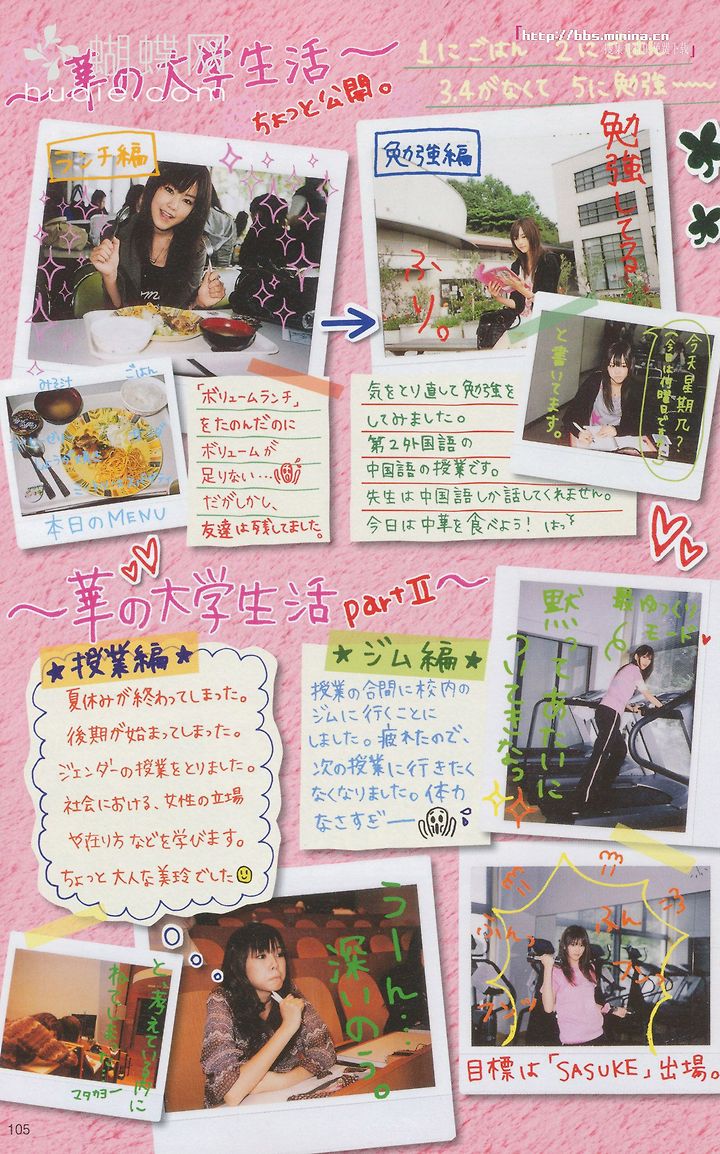 「http://bbs.minina.cn
蝴蝶网
hudie.com
～華の大学生活～
ちょっと公開。
1にごはん 2に
3.4がなくて 5に勉強〜〜
ランチ編
勉強編
勉強してる
ふり。
みそ汁
ごはん
本日のMENU
「ボリュームランチ」
をたのんだのに
ボリュームが
足りない…
だがしかし、
友達は残してました。
気をとり直して勉強を
してみました。
第2外国語の
中国語の授業です。
先生は中国語しか話してくれません。
今日は中華を食べよう! はっ
今天星期几?
(今日は何曜日ですか)
と書いてます。
～華の大学生活 partⅡ～
★授業編★
夏休みが終わってしまった。
後期が始まってしまった。
ジェンダーの授業をとりました。
社会における、女性の立場
や在り方などを学びます。
ちょっと大人な美玲でした
★ジム編★
授業の合間に校内の
ジムに行くことに
しました。疲れたので、
次の授業に行きたく
なくなりました。体力
なさすぎー
最ゆっくり
モード
黙ってあたいに
ついてきなっ
うーん…
深いのう。
と、考えている内に
ねていました…
マタカヨー
ふんっ
ふん
フンッ
目標は「SASUKE」出場。
105